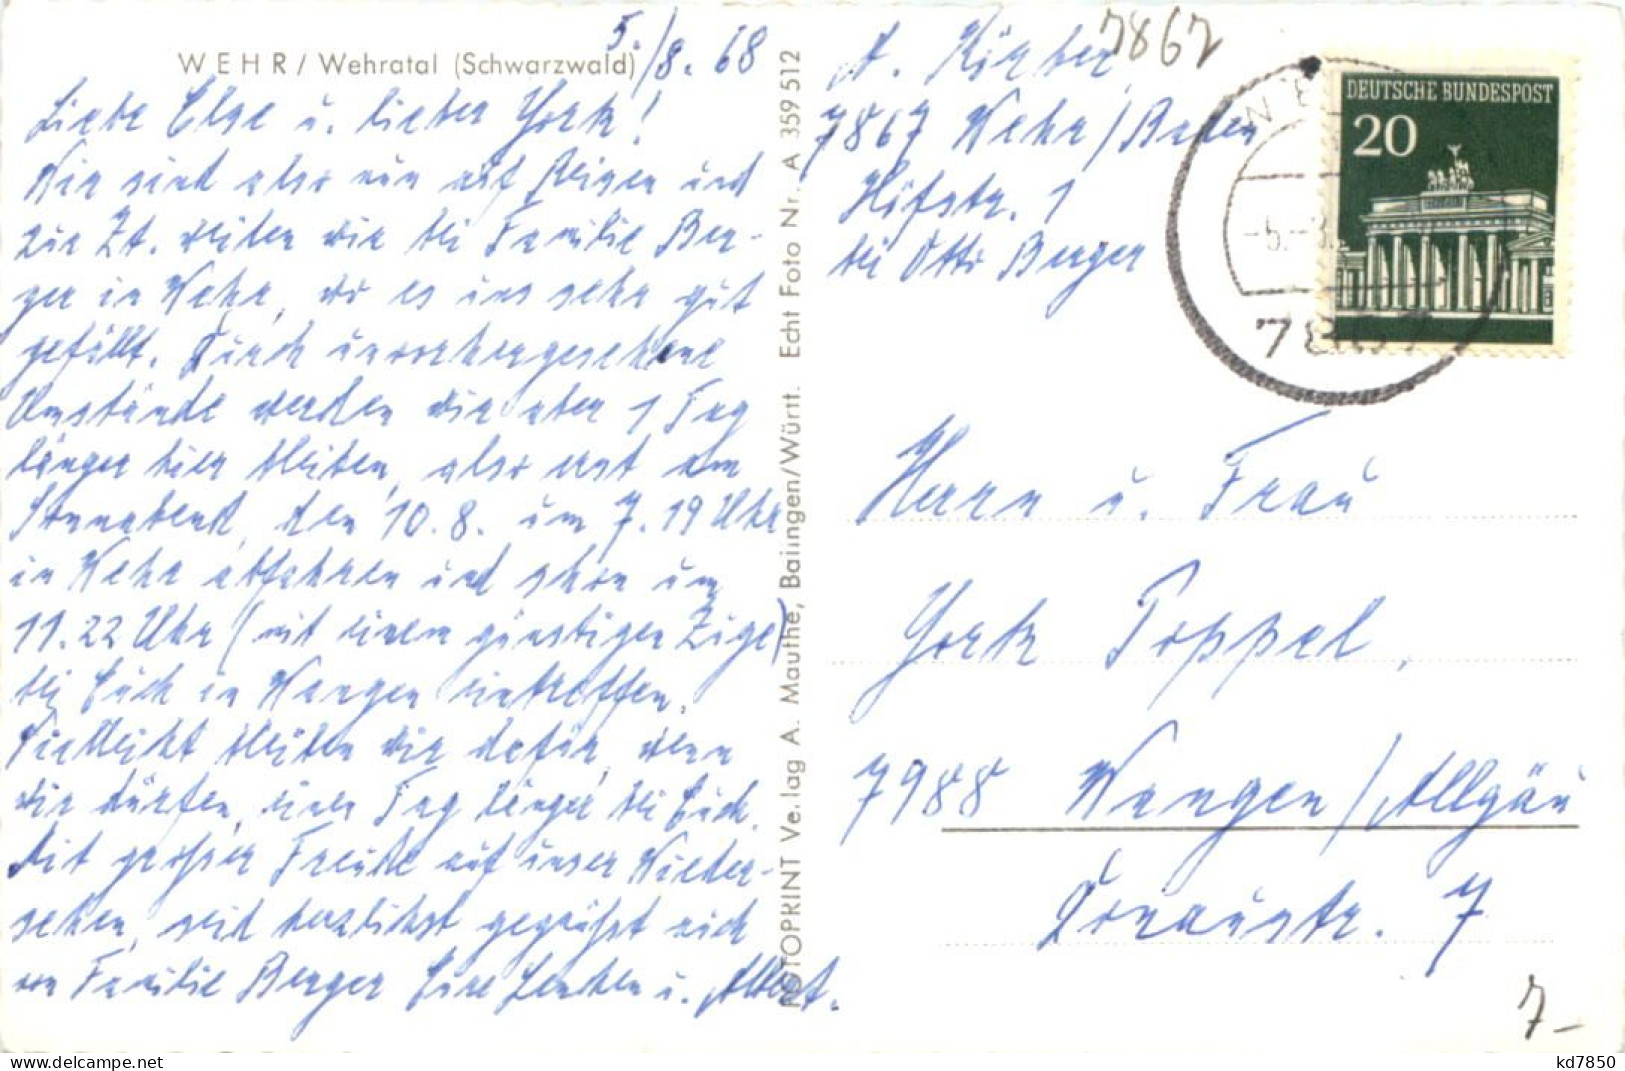 WEHR / Wehratal (Schwarzwald)
5./8. 68
Liebe Else u. lieber York!
Wir sind also nun auf Reisen und
zur Zt. weilen wir bei Familie Ber-
ger in Wehr, wo es uns sehr gut
gefällt. Durch unvorhergesehene
Umstände werden wir aber 1 Tag
länger hier bleiben, also erst am
Sonnabend, den 10.8. um 7.19 Uhr
in Wehr abfahren und schon um
11.22 Uhr (mit einem günstigen Zuge)
bei Euch in Wangen eintreffen.
Vielleicht bleiben wir dafür, wenn
wir dürfen, einen Tag länger bei Euch.
Mit großer Freude auf unser Wieder-
sehen, seid herzlichst gegrüßt auch
von Familie Berger Eure u. Albert.
FOTOPRINT Verlag A. Mauthe, Balingen/Württ. Echt Foto Nr. A 359 512
7867
A.
7867 Wehr/Baden
Höfstr. 1
bei Otto Berger
DEUTSCHE BUNDESPOST
20
Herrn u. Frau
York Poppel,
7988 Wangen/Allgäu
Donaustr. 7
7-
kd7850